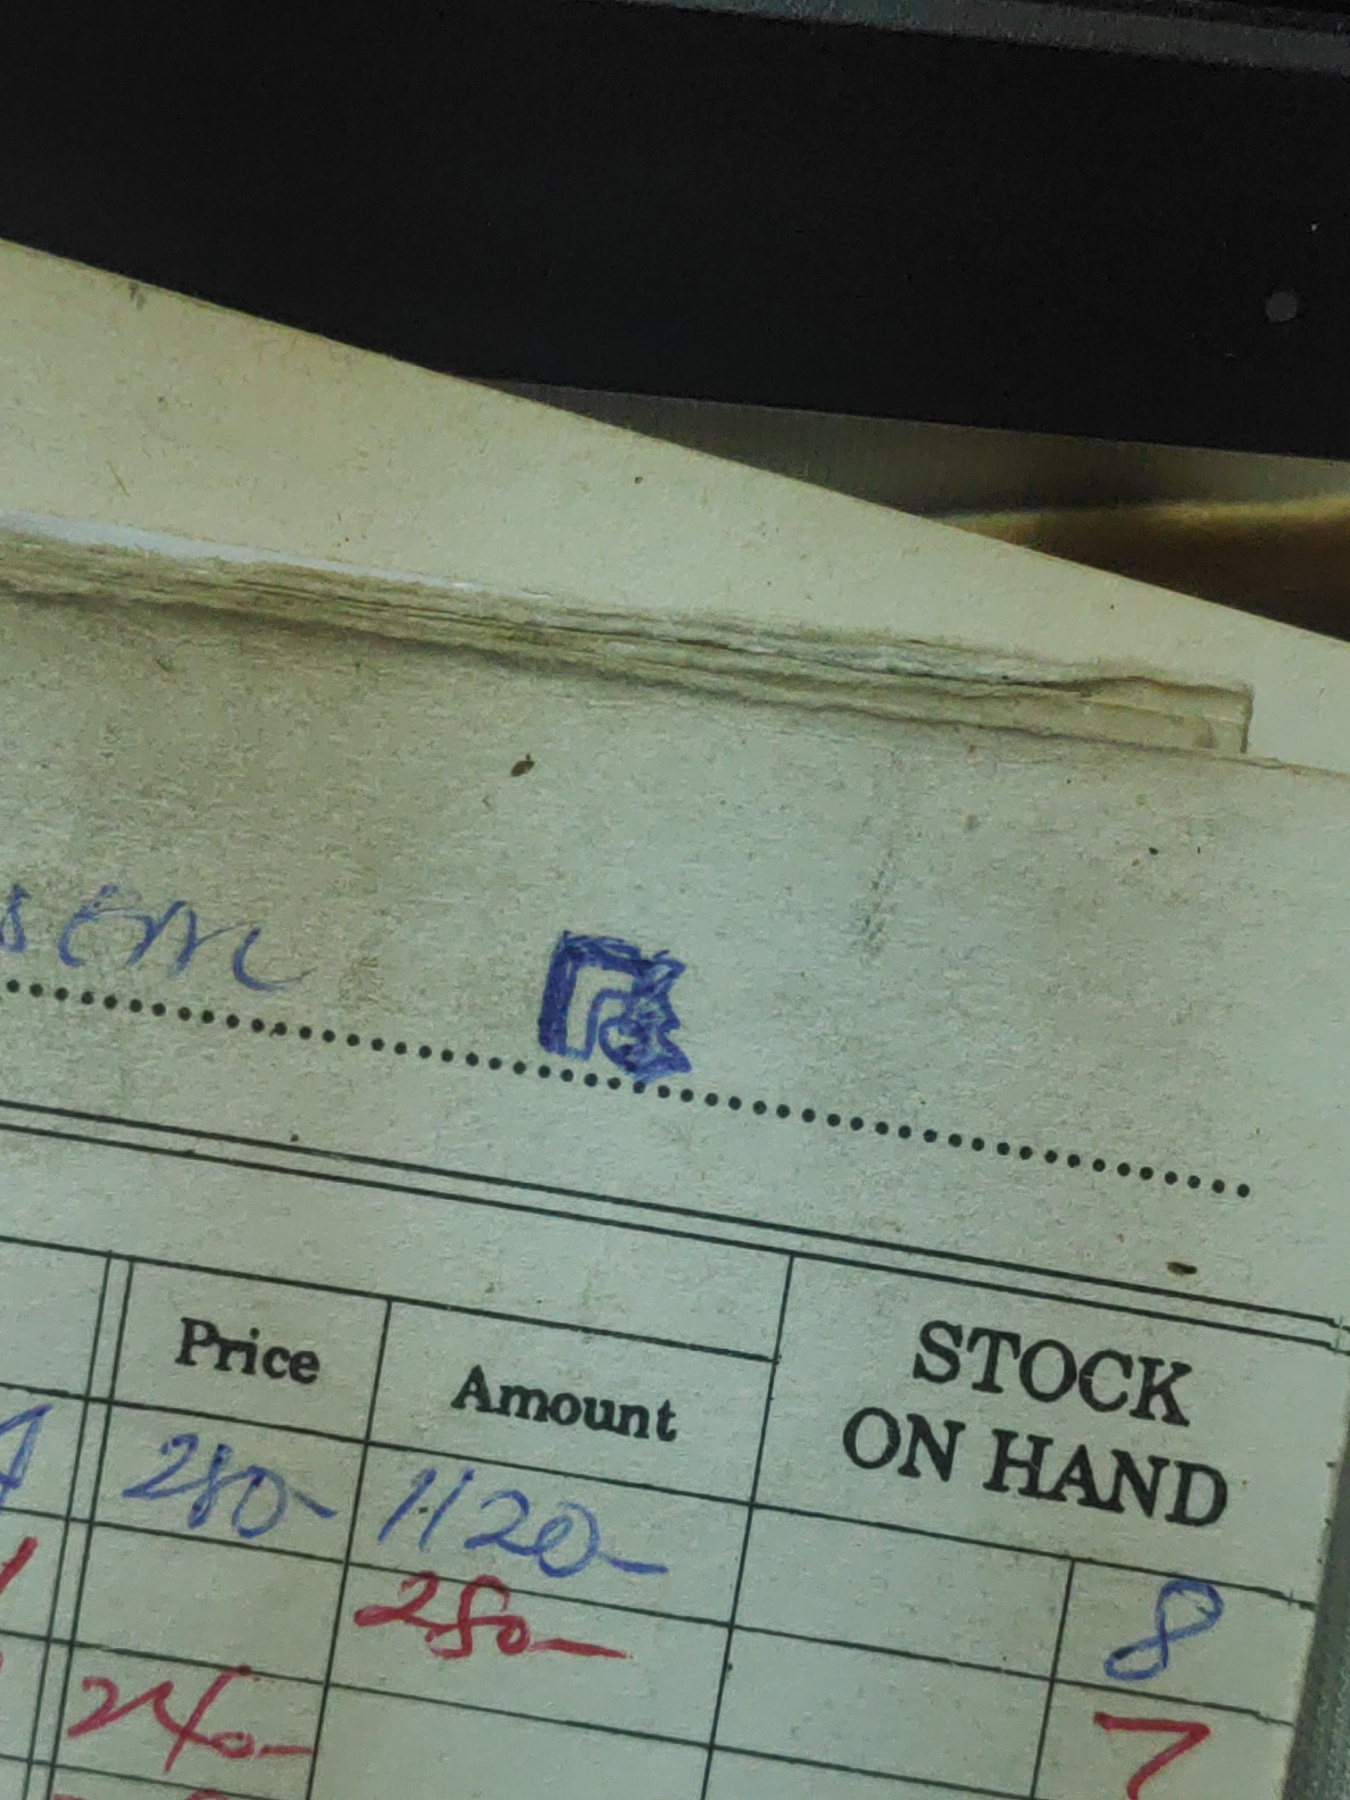 Price Amount STOCK
ON HAND
4 280- 1120- 8
280- 7
240-